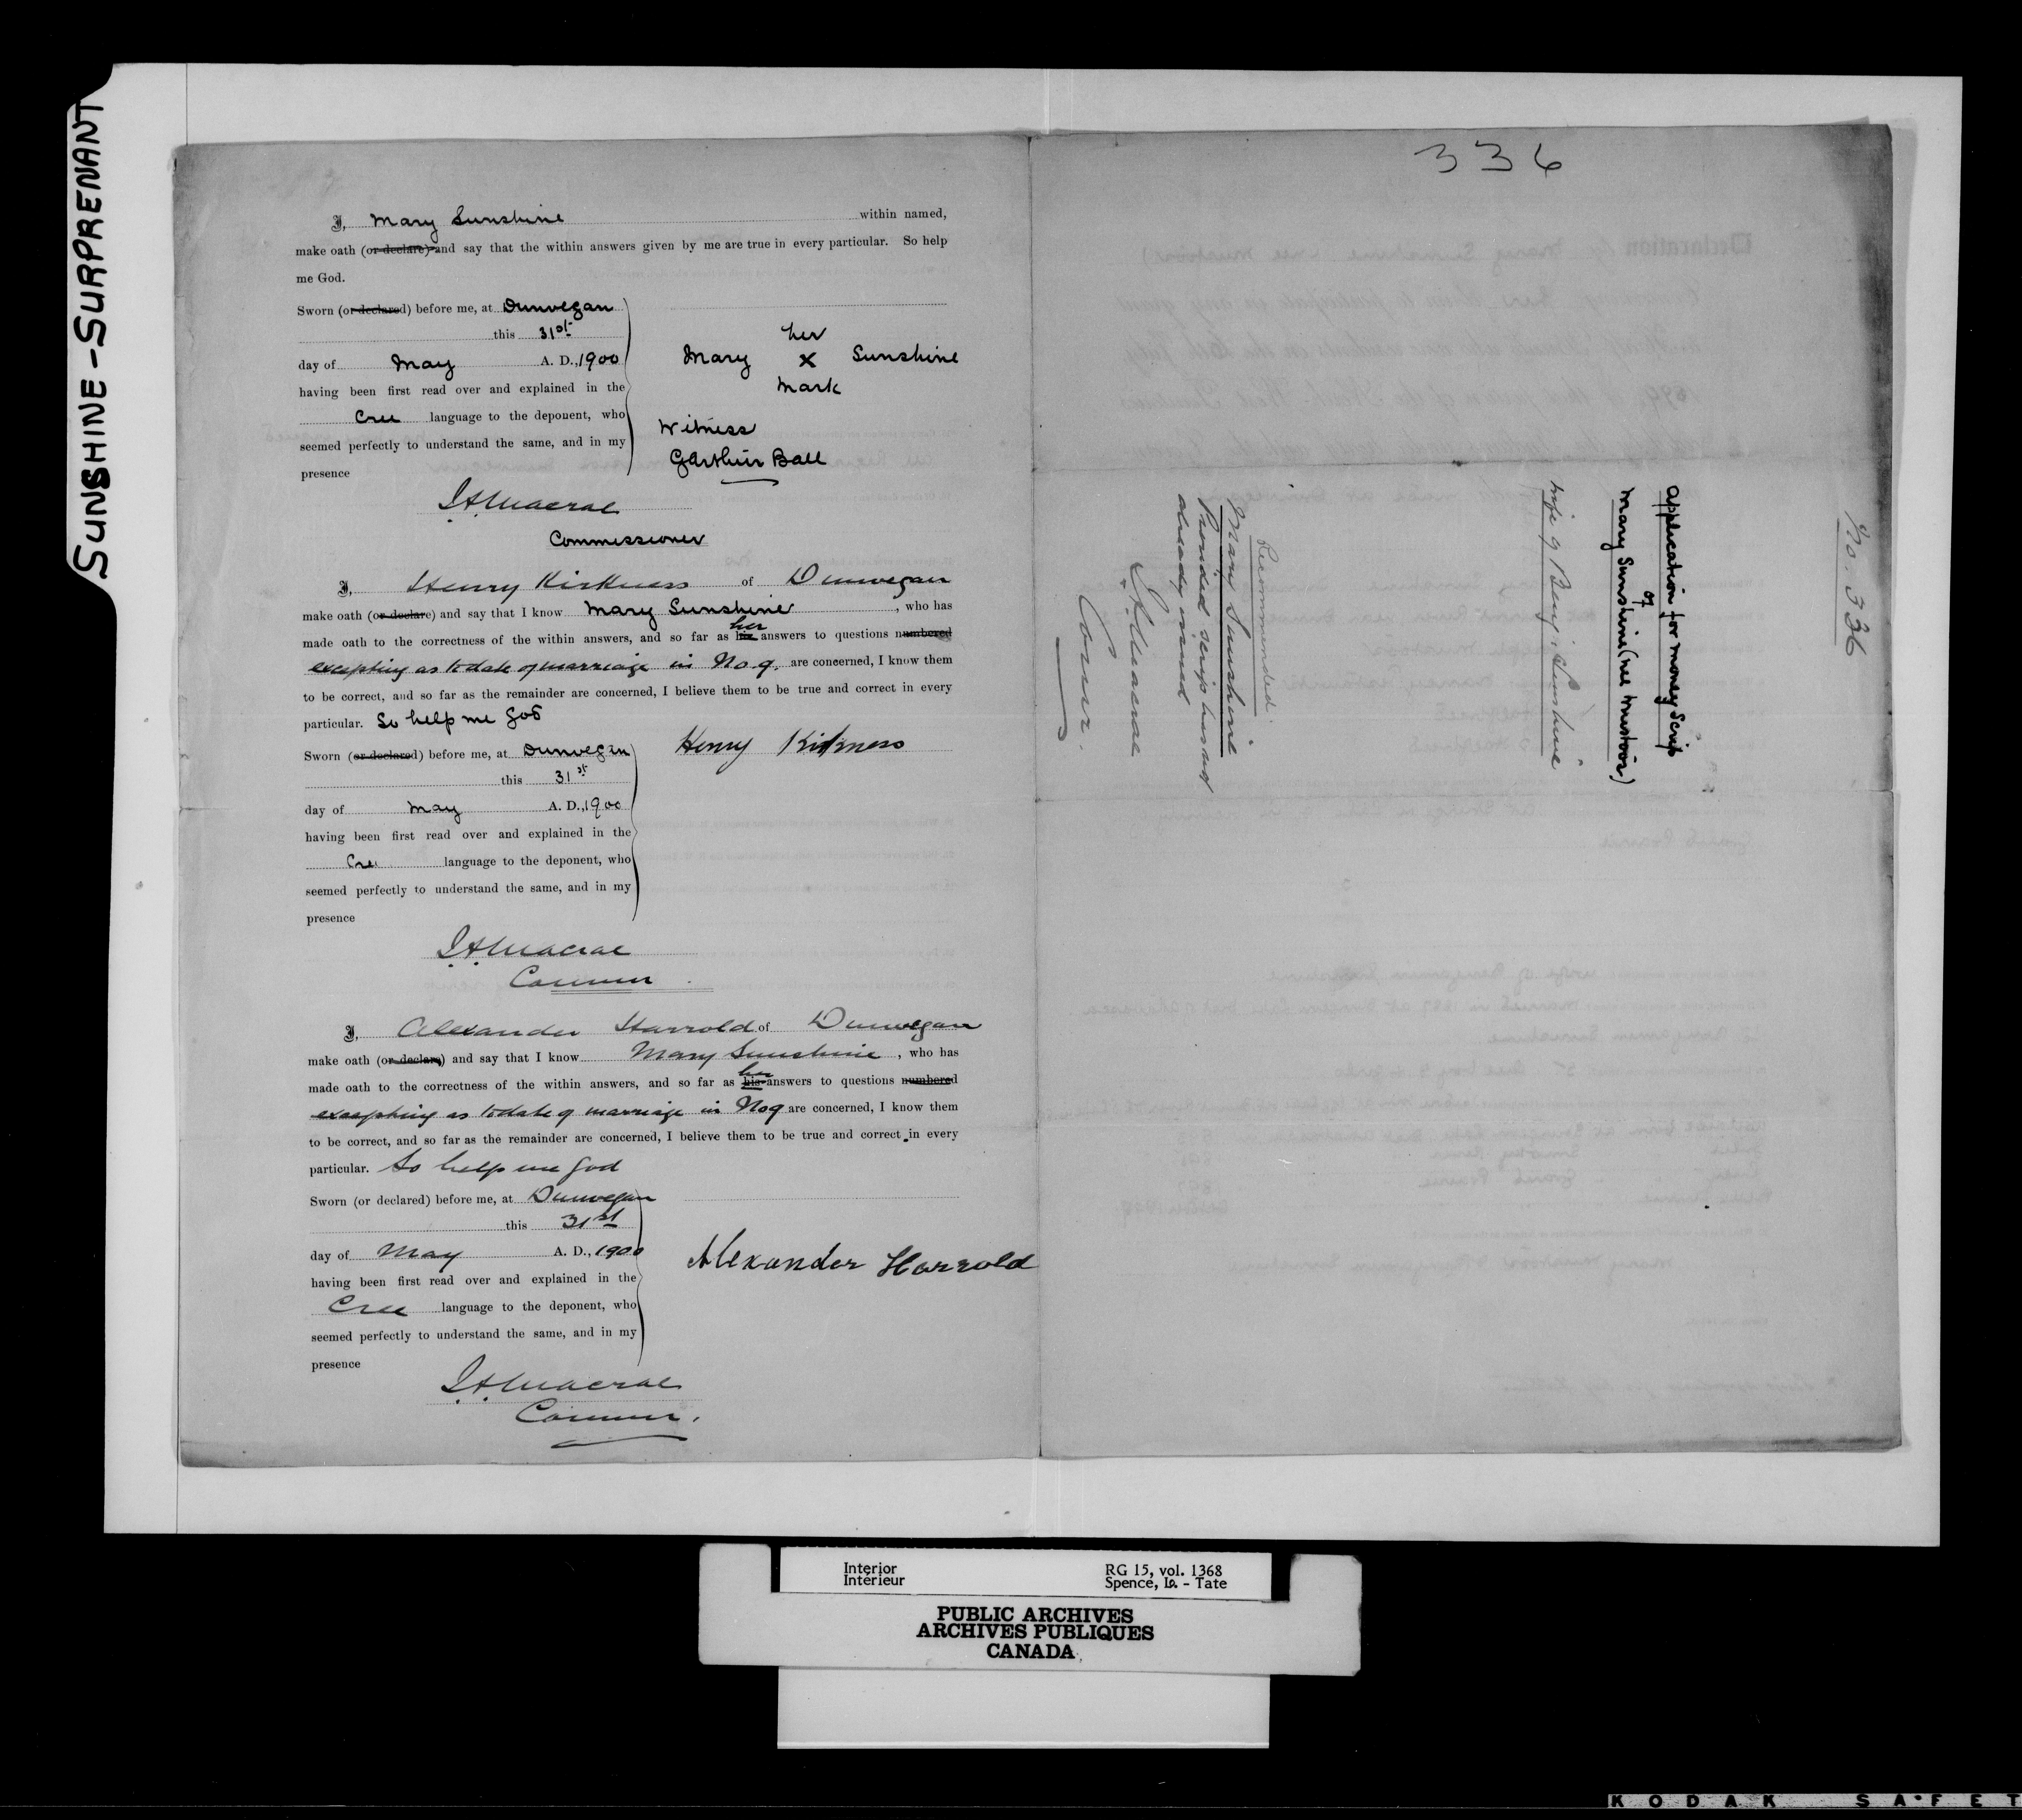 SUNSHINE - SURPRENANT
I, Mary Sunshine within named,
make oath (or declare) and say that the within answers given by me are true in every particular. So help
me God.
Sworn (or declared) before me, at Dunvegan
this 31st
day of May A. D., 1900
having been first read over and explained in the
Cree language to the deponent, who
seemed perfectly to understand the same, and in my
presence
her
Mary X Sunshine
mark
Witness
Garthur Ball
J.A.Macrae
Commissioner
I, Henry Kirkness of Dunvegan
make oath (or declare) and say that I know Mary Sunshine, who has
made oath to the correctness of the within answers, and so far as his her answers to questions numbered
excepting as to date of marriage in No. 9. are concerned, I know them
to be correct, and so far as the remainder are concerned, I believe them to be true and correct in every
particular. So help me God
Sworn (or declared) before me, at Dunvegan
this 31st
day of May A. D., 1900
having been first read over and explained in the
Cree language to the deponent, who
seemed perfectly to understand the same, and in my
presence
Henry Kirkness
J.A.Macrae
Commr
I, Alexander Harrold of Dunvegan
make oath (or declare) and say that I know Mary Sunshine, who has
made oath to the correctness of the within answers, and so far as his her answers to questions numbered
excepting as to date of marriage in No 9 are concerned, I know them
to be correct, and so far as the remainder are concerned, I believe them to be true and correct in every
particular. So help me God
Sworn (or declared) before me, at Dunvegan
this 31st
day of May A. D., 1900
having been first read over and explained in the
Cree language to the deponent, who
seemed perfectly to understand the same, and in my
presence
Alexander Harrold
J.A.Macrae
Commr.
336
No. 336
Application for money Scrip
of
Mary Sunshine (nee Mustoos)
wife of Benj: Sunshine
Recommended.
Mary Sunshine
Provided scrip has not
already issued
J.A.Macrae
Commr.
Interior
Intérieur
RG 15, vol. 1368
Spence, Is. - Tate
PUBLIC ARCHIVES
ARCHIVES PUBLIQUES
CANADA
KODAK SAFET